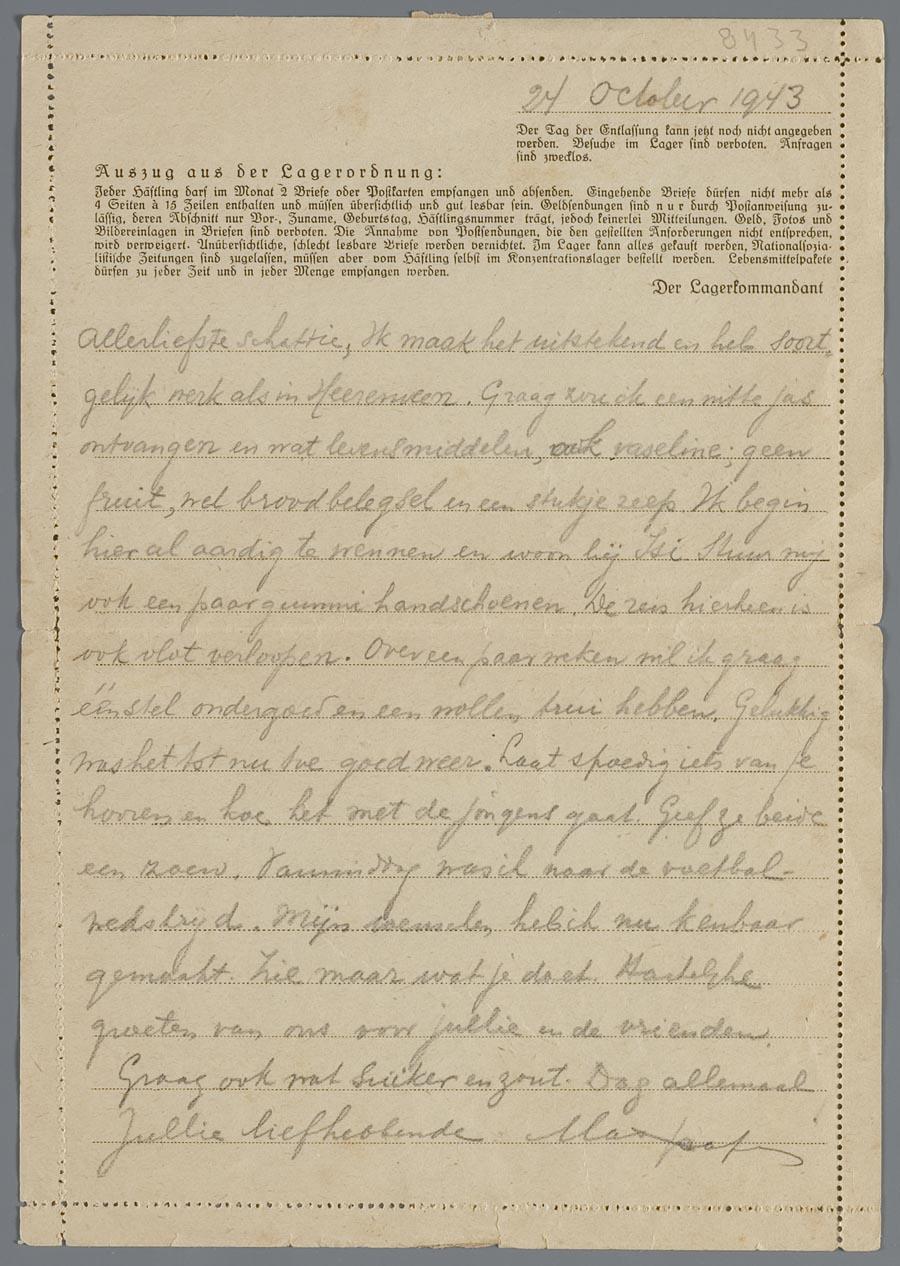 8433
24 October 1943
Der Tag der Entlassung kann jetzt noch nicht angegeben
werden. Besuche im Lager sind verboten. Anfragen
sind zwecklos.
Auszug aus der Lagerordnung:
Jeder Häftling darf im Monat 2 Briefe oder Postkarten empfangen und absenden. Eingehende Briefe dürfen nicht mehr als
4 Seiten à 15 Zeilen enthalten und müssen übersichtlich und gut lesbar sein. Geldsendungen sind nur durch Postanweisung zu-
lässig, deren Abschnitt nur Vor-, Zuname, Geburtstag, Häftlingsnummer trägt, jedoch keinerlei Mitteilungen. Geld, Fotos und
Bildereinlagen in Briefen sind verboten. Die Annahme von Postsendungen, die den gestellten Anforderungen nicht entsprechen,
wird verweigert. Unübersichtliche, schlecht lesbare Briefe werden vernichtet. Im Lager kann alles gekauft werden, Nationalsozia-
listische Zeitungen sind zugelassen, müssen aber vom Häftling selbst im Konzentrationslager bestellt werden. Lebensmittelpakete
dürfen zu jeder Zeit und in jeder Menge empfangen werden.
Der Lagerkommandant
Allerliefste schattie, Ik maak het uitstekend en heb soort-
gelijk werk als in Heerenveen. Graag zou ik een witte jas
ontvangen en wat levensmiddelen, ook vaseline; geen
fruit, wel broodbelegsel en een stukje zeep. Ik begin
hier al aardig te wennen en woon bij Isi Stuur mij
ook een paar gummi handschoenen. De reis hierheen is
ook vlot verloopen. Over een paar weken wil ik graag
één stel ondergoed en een wollen trui hebben. Gelukkig
was het tot nu toe goed weer. Laat spoedig iets van je
hooren en hoe het met de jongens gaat. Geef ze beide
een zoen. Vanmiddag was ik naar de voetbal-
wedstrijd. Mijn wenschen heb ik nu kenbaar
gemaakt. Zie maar wat je doet. Hartelijke
groeten van ons voor jullie en de vrienden.
Graag ook wat suiker en zout. Dag allemaal
Jullie liefhebbende Max